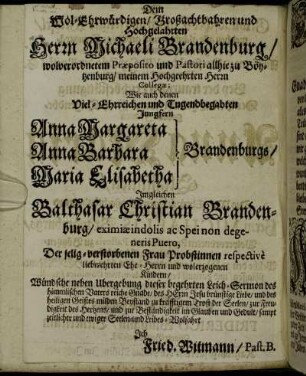 Dem
Wol-Ehrwürdigen/ Großachtbahren und
Hochgelahrten
Herrn Michaeli Brandenburg/
wolverordnetem Præposito und Pastori allhie zu Böy-
tzenburg/ meinem Hochgeehrten Herrn
Collegæ:
Wie auch denen
Viel-Ehrreichen und Tugendbegabten
Jungfern
Anna Margareta
Anna Barbara
Maria Elisabetha
Brandenburgs/
Jmgleichen
Balthasar Christian Branden-
burg/ eximiæ indolis ac Spei non dege-
neris Puero,
Der selig-verstorbenen Frau Probstinnen respectivè
liebwehrten Ehe-Herren und wolerzogenen
Kindern/
Wündsche neben Ubergebung dieser begehrten Leich-Sermon des
himmlischen Vaters reiche Gnade/ des HErrn Jesu brünstige Liebe/ und des
heiligen Geistes milden Beystand zu kräfftigem Trost der Seelen/ zur Freu-
digkeit des Hertzens/ und zur Beständigkeit im Glauben und Gedult/ sampt
zeitlicher und ewiger Seelen und Leibes-Wolfahrt
Jch
Fried. Witmann/ Past. B.